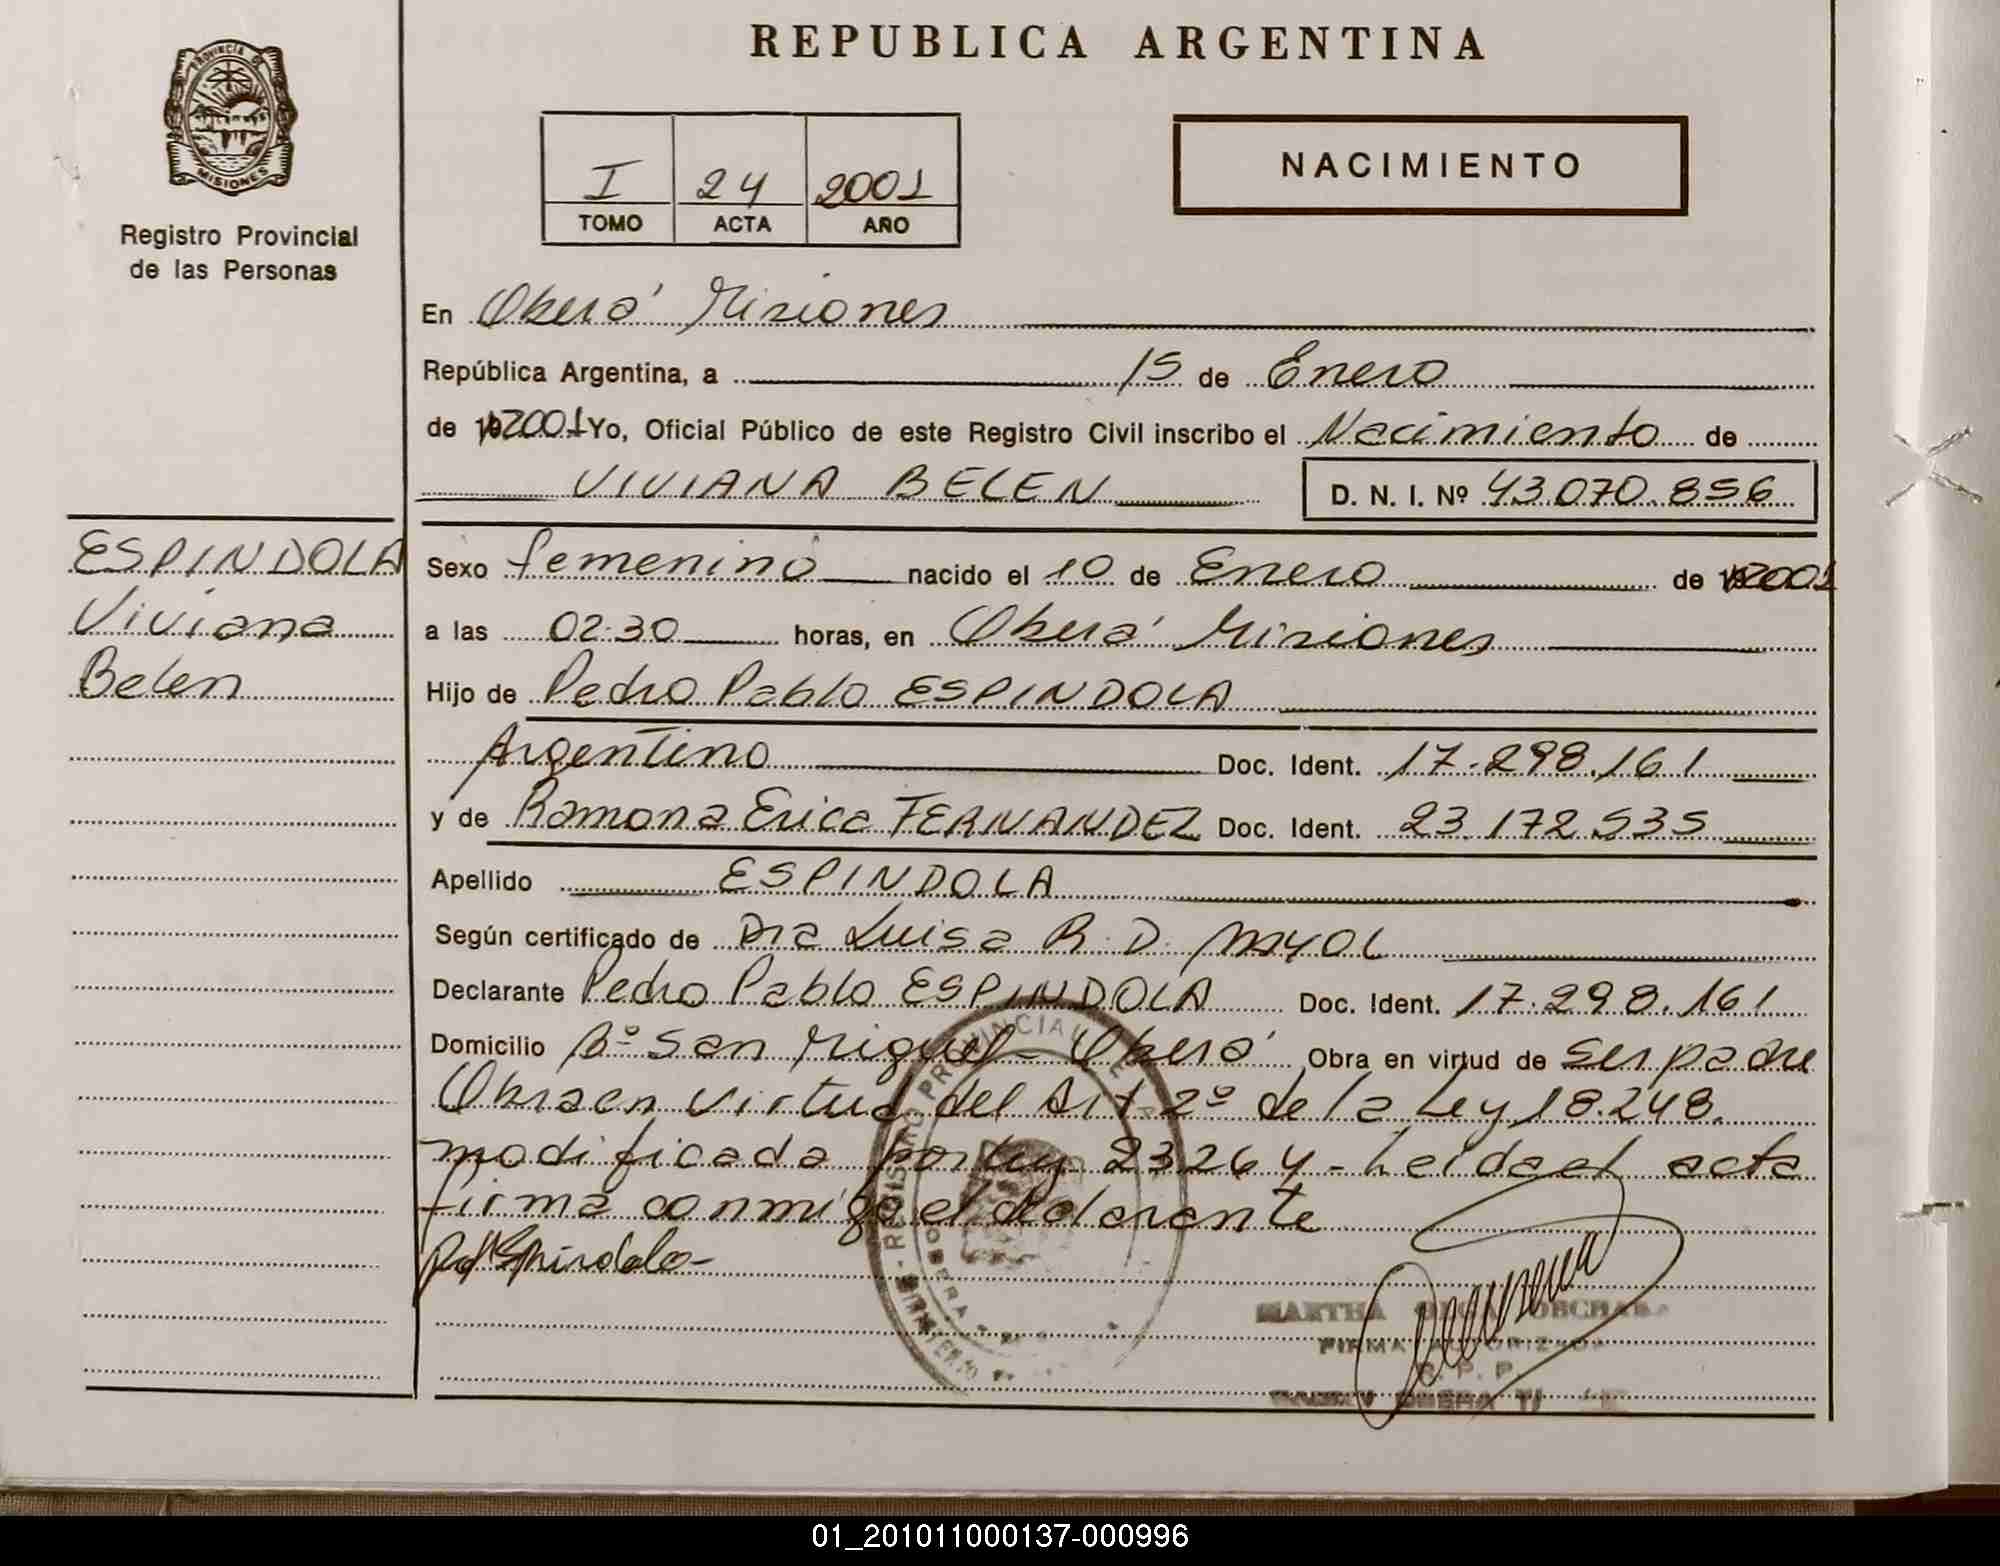 REPUBLICA ARGENTINA
PROVINCIA DE
MISIONES
Registro Provincial
de las Personas
I 24 2001
TOMO ACTA AÑO
NACIMIENTO
En Oberá Misiones
República Argentina, a 15 de Enero
de 2001 Yo, Oficial Público de este Registro Civil inscribo el Nacimiento de
VIVIANA BELEN D. N. I. Nº 43.070.856
ESPINDOLA
Viviana
Belen
Sexo femenino nacido el 10 de Enero de 2001
a las 02.30 horas, en Oberá Misiones
Hijo de Pedro Pablo ESPINDOLA
Argentino Doc. Ident. 17.298.161
y de Ramona Erica FERNANDEZ Doc. Ident. 23.172.535
Apellido ESPINDOLA
Según certificado de Dra Luisa R. D. MYOL
Declarante Pedro Pablo ESPINDOLA Doc. Ident. 17.298.161
Domicilio Bº San Miguel - Oberá Obra en virtud de ser padre
Obra en virtud del Art 2º de la Ley 18.248.
modificada por ley 23264 - Leida el acta
firma conmigo el declarante
REGISTRO PROVINCIAL DE
OBERA
MARTHA
FIRMA AUTORIZADA
R. P. P.
OBERA
01_201011000137-000996